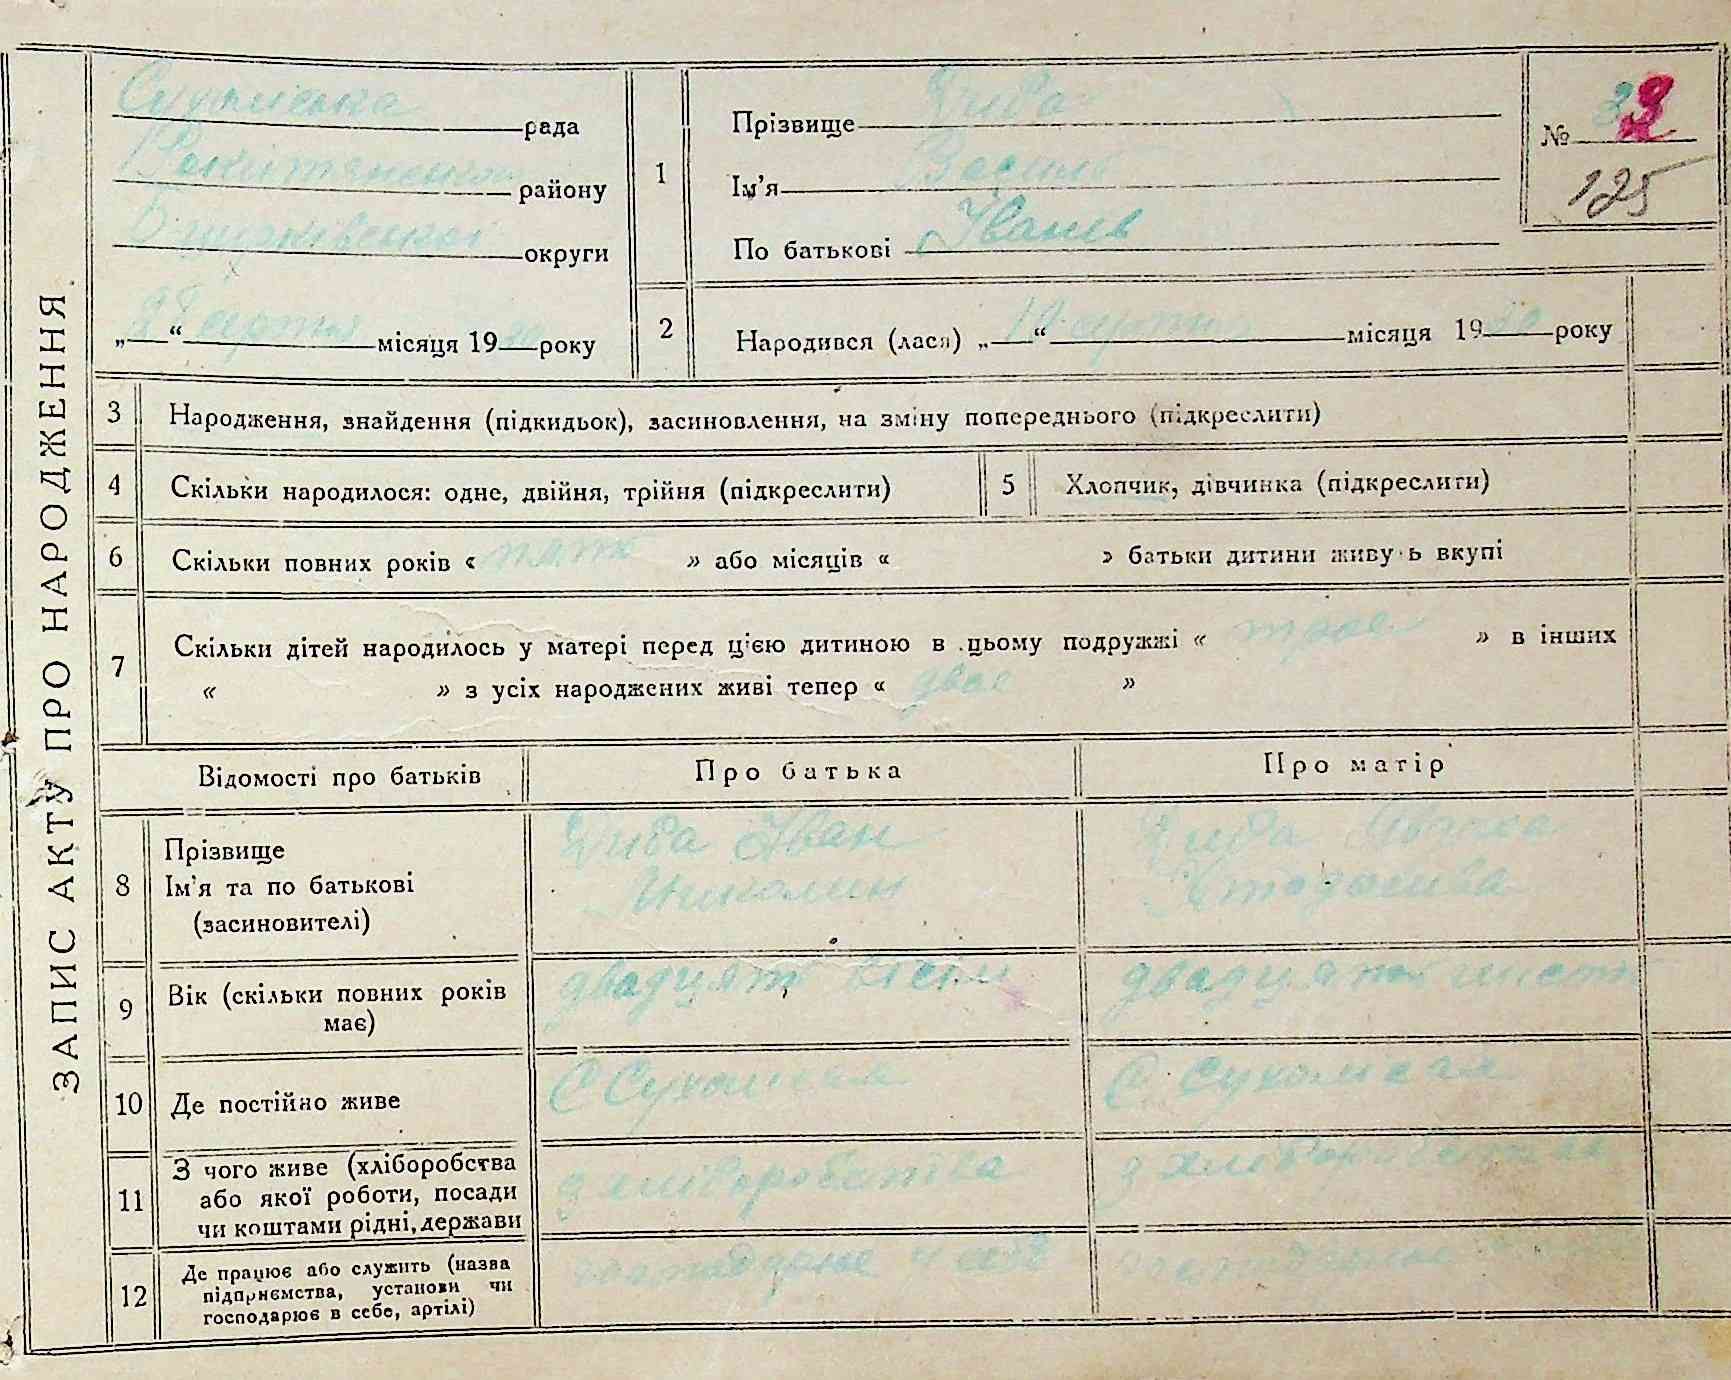 ЗАПИС АКТУ ПРО НАРОДЖЕННЯ
рада
району
округи
„ “ серпня місяця 19 року
1
Прізвище Диба
Ім'я Василь
По батькові Іванів
№ 32
125
2
Народився (лася) „19“ серпня місяця 1930 року
3 Народження, знайдення (підкидьок), засиновлення, на зміну попереднього (підкреслити)
4 Скільки народилося: одне, двійня, трійня (підкреслити)
5 Хлопчик, дівчинка (підкреслити)
6 Скільки повних років « пять » або місяців « » батьки дитини живуть вкупі
7 Скільки дітей народилось у матері перед цією дитиною в цьому подружжі « троє » в інших
« » з усіх народжених живі тепер « двоє »
Відомості про батьків Про батька Про матір
8 Прізвище
Ім'я та по батькові
(засиновителі)
Диба Іван
Диба
9 Вік (скільки повних років
має)
двадцять вісім
двадцять шість
10 Де постійно живе
С Сухолися
С Сухолися
11 З чого живе (хліборобства
або якої роботи, посади
чи коштами рідні, держави
з хліборобства
з хліборобства
12 Де працює або служить (назва
підприємства, установи чи
господарює в себе, артілі)